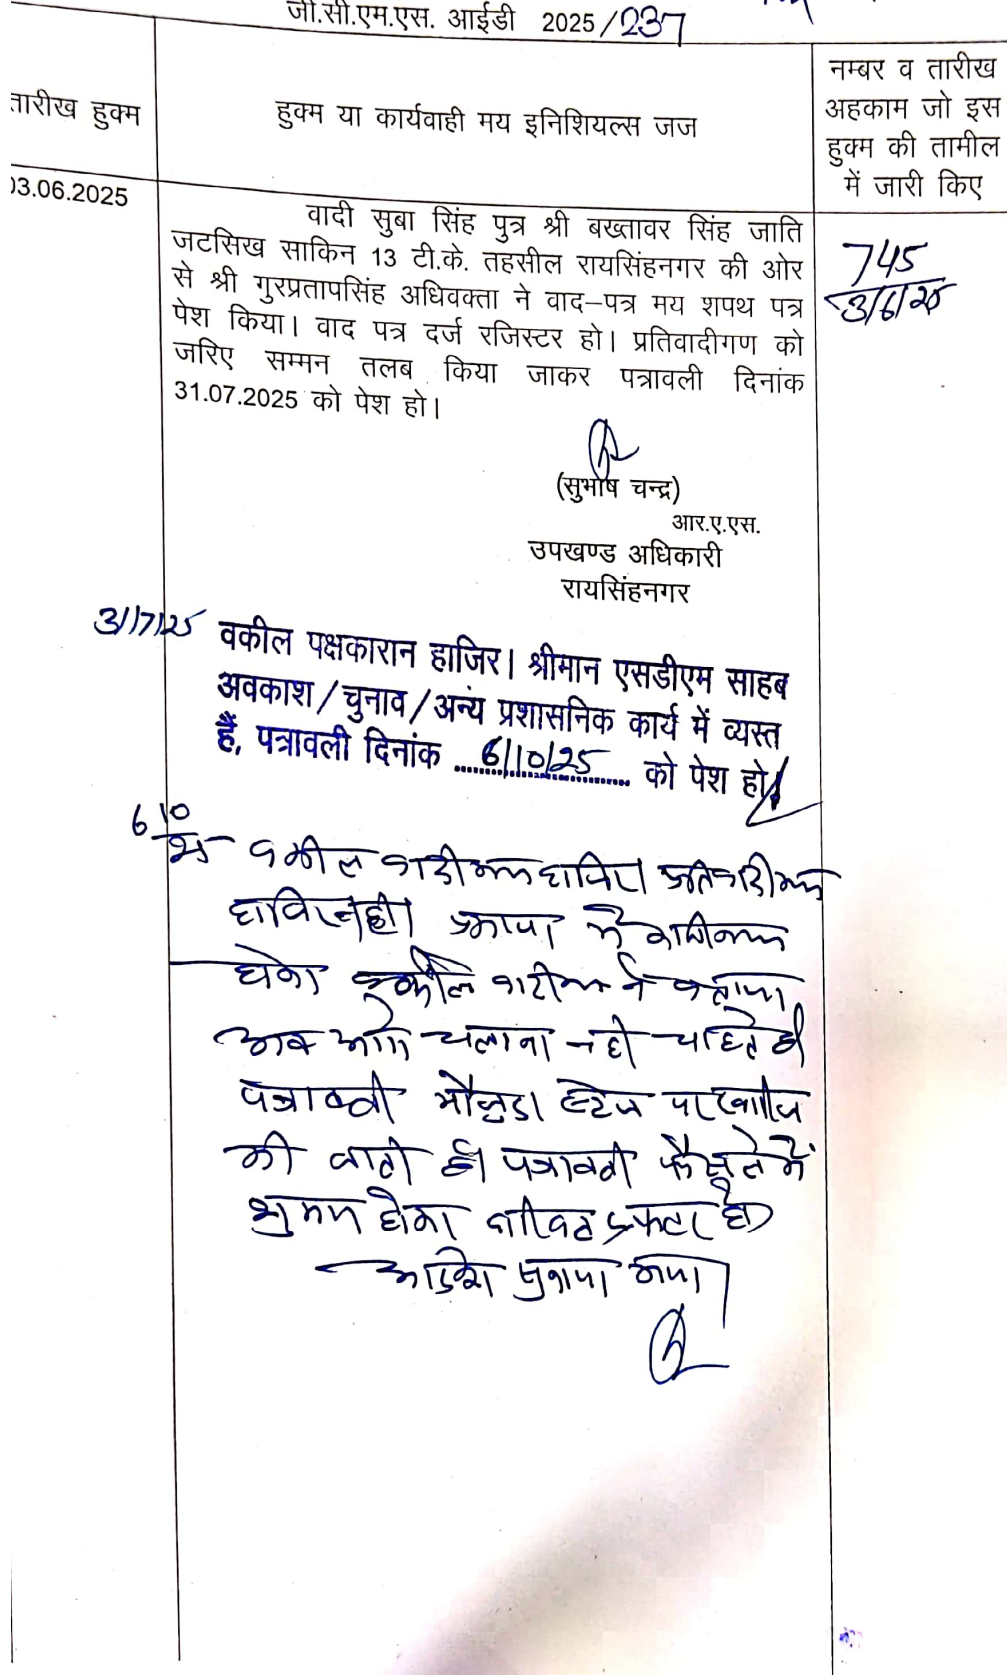 जी.सी.एम.एस. आईडी 2025/237
तारीख हुक्म
हुक्म या कार्यवाही मय इनिशियल्स जज
नम्बर व तारीख
अहकाम जो इस
हुक्म की तामील
में जारी किए
03.06.2025
वादी सुबा सिंह पुत्र श्री बख्तावर सिंह जाति
जटसिख साकिन 13 टी.के. तहसील रायसिंहनगर की ओर
से श्री गुरप्रतापसिंह अधिवक्ता ने वाद–पत्र मय शपथ पत्र
पेश किया। वाद पत्र दर्ज रजिस्टर हो। प्रतिवादीगण को
जरिए सम्मन तलब किया जाकर पत्रावली दिनांक
31.07.2025 को पेश हो।
745
3/6/25
(सुभाष चन्द्र)
आर.ए.एस.
उपखण्ड अधिकारी
रायसिंहनगर
31/7/25 वकील पक्षकारान हाजिर। श्रीमान एसडीएम साहब
अवकाश/चुनाव/अन्य प्रशासनिक कार्य में व्यस्त
हैं, पत्रावली दिनांक 6/10/25 को पेश हो।
6/10/25 वकील वादीगण हाजिर। प्रतिवादीगण
हाजिर नही।
वकील वादीगण ने बताया
अब आगे चलाना नही चाहते है।
पत्रावली मौजुदा स्टेज पर खारीज
की जाती है। पत्रावली फैसले में
शुमार होकर दाखिल दफ्तर हो।
आदेश सुनाया गया।